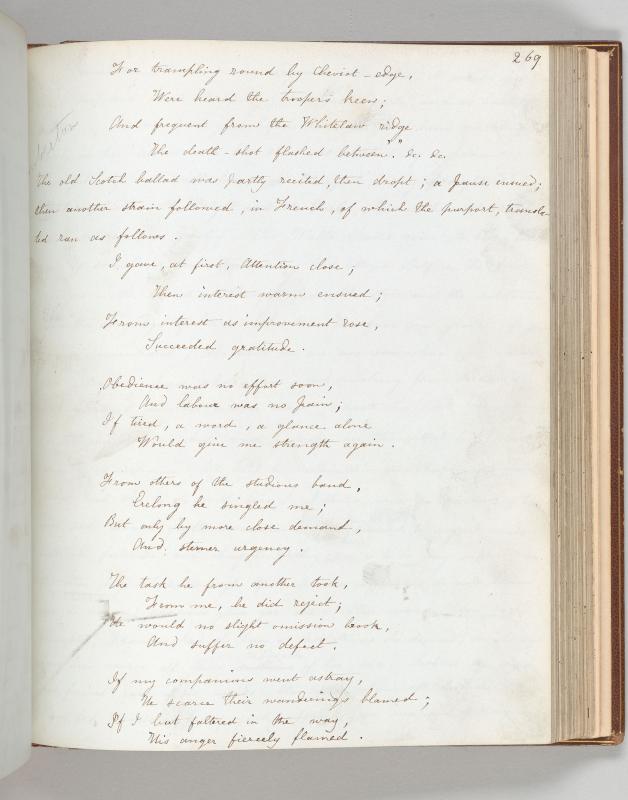 269
For trampling round by Cheviot-edge,
Were heard the troopers keen;
And frequent from the Whitelaw ridge
The death-shot flashed between"." &c. &c.
the old Scotch ballad was partly recited, then dropt; a pause ensued;
then another strain followed, in French, of which the purport, transla-
ted ran as follows.
I gave, at first, Attention close;
Then interest warm ensued;
From interest as improvement rose,
Succeeded gratitude.
Obedience was no effort soon,
And labour was no pain;
If tired, a word, a glance alone
Would give me strength again.
From others of the studious band,
Erelong he singled me;
But only by more close demand,
And sterner urgency.
The task he from another took,
From me, he did reject;
He would no slight omission brook,
And suffer no defect.
If my companions went astray,
He scarce their wanderings blamed;
If I but faltered in the way,
His anger fiercely flamed.